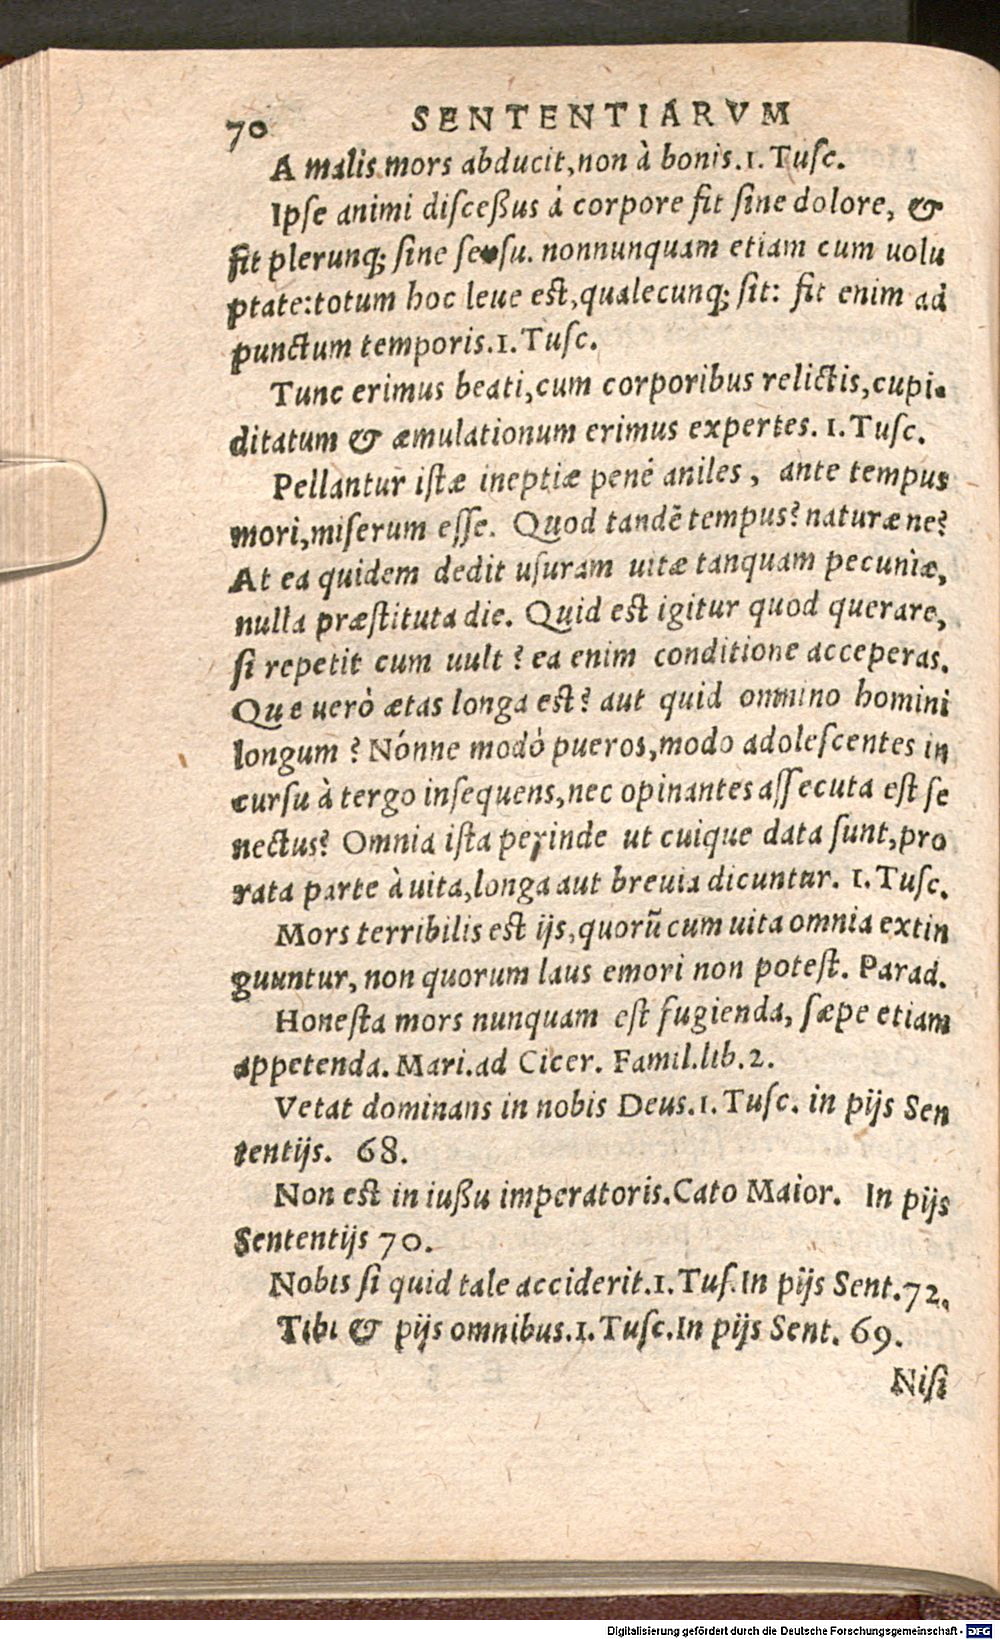 70 SENTENTIARVM
A malis mors abducit,non à bonis.1.Tusc.
Ipse animi discessus á corpore fit sine dolore, &
fit plerunq; sine sensu. nonnunquam etiam cum uolu
ptate:totum hoc leue est,qualecunq; sit: fit enim ad
punctum temporis.1.Tusc.
Tunc erimus beati,cum corporibus relictis,cupi-
ditatum & æmulationum erimus expertes. 1.Tusc.
Pellantur istæ ineptiæ pené aniles, ante tempus
mori,miserum esse. Quod tandē tempus? naturæ ne?
At ea quidem dedit usuram uitæ tanquam pecuniæ,
nulla præstituta die. Quid est igitur quod querare,
si repetit cum uult? ea enim conditione acceperas.
Que uerò ætas longa est? aut quid omnino homini
longum? Nónne modó pueros,modo adolescentes in
cursu à tergo insequens,nec opinantes assecuta est se
nectus? Omnia ista perinde ut cuique data sunt,pro
rata parte à uita,longa aut breuia dicuntur. 1.Tusc.
Mors terribilis est ijs,quorū cum uita omnia extin
guuntur, non quorum laus emori non potest. Parad.
Honesta mors nunquam est fugienda, sæpe etiam
appetenda. Mari.ad Cicer. Famil.lib.2.
Vetat dominans in nobis Deus.1.Tusc. in pijs Sen
tentijs. 68.
Non est in iussu imperatoris.Cato Maior. In pijs
Sententijs 70.
Nobis si quid tale acciderit.1.Tus.In pijs Sent.72.
Tibi & pijs omnibus.1.Tusc.In pijs Sent. 69.
Nisi
Digitalisierung gefördert durch die Deutsche Forschungsgemeinschaft - DFG